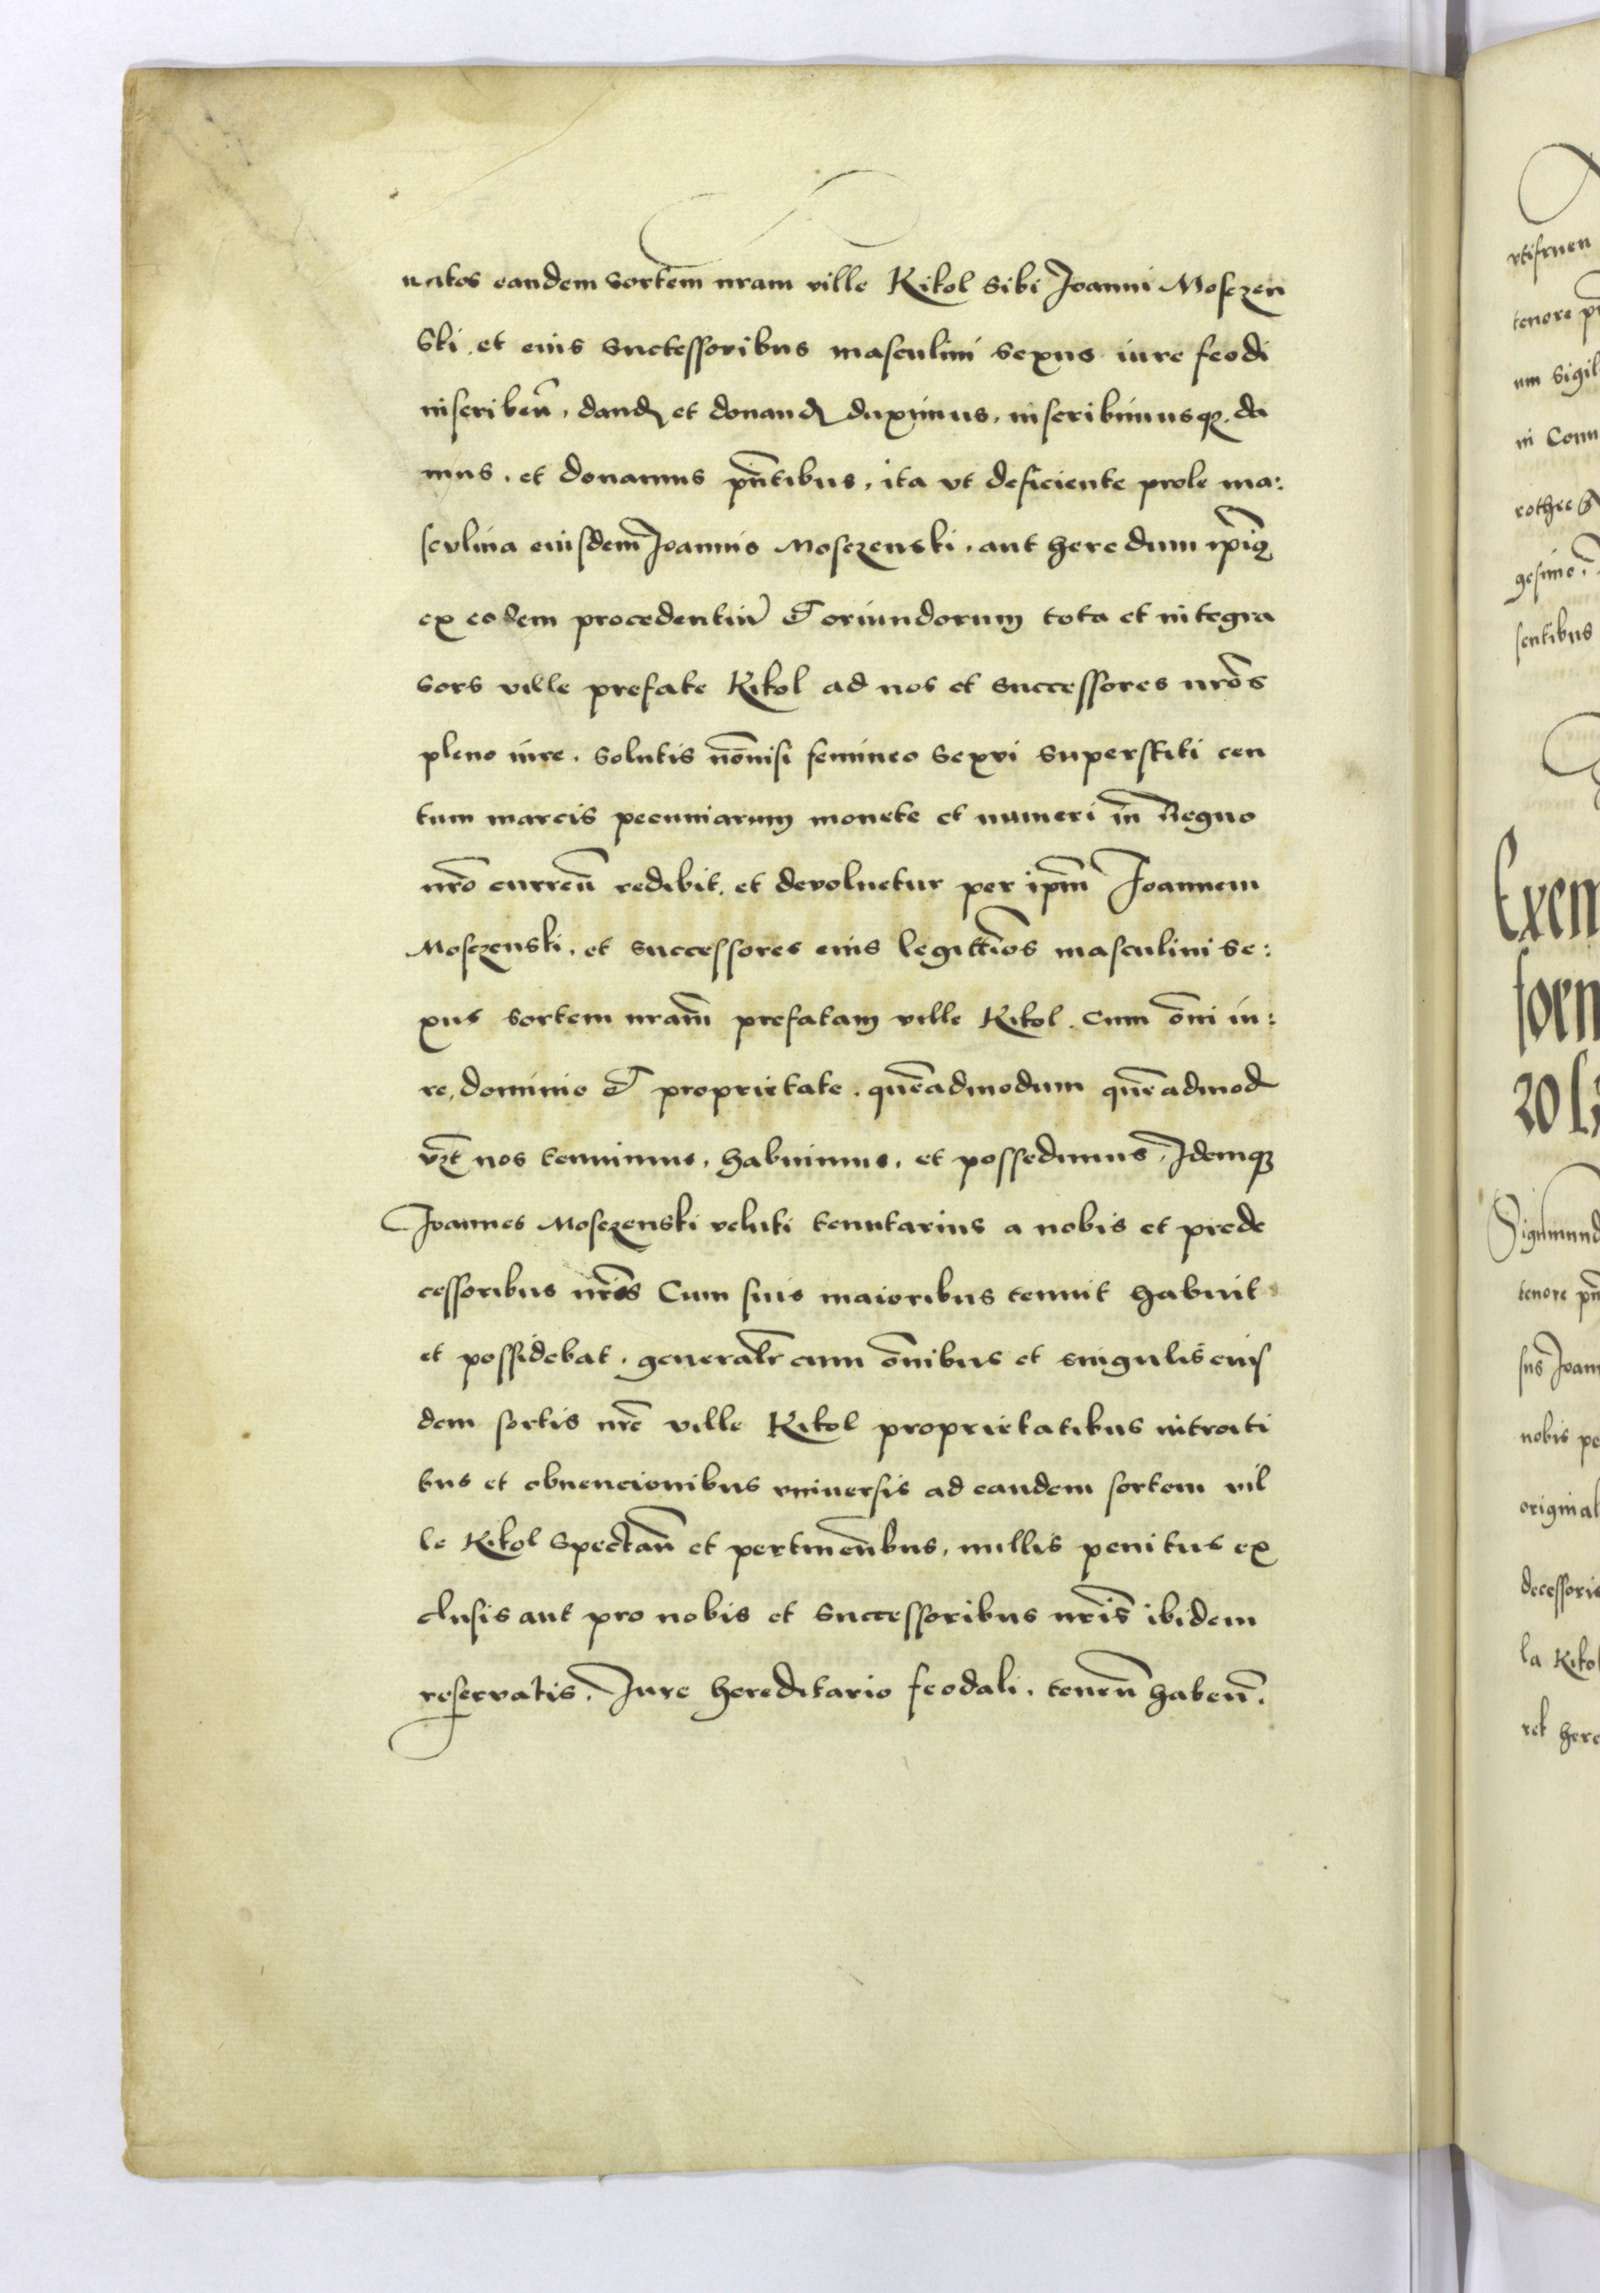 natos eandem sortem nram ville Kikol sibi Joanni Mosczen
ski. et eius successoribus masculini sexus iure feodi
inscriben̄, dand et donand duximus, inscribimusq. da
mus, et donamus pn̄tibus, ita vt deficiente prole ma:
sculina eiusdem Joannis Mosczenski, aut heredum ipiq
ex eodem procedentiū et oriundorum tota et integra
sors ville prefate Kikol ad nos et successores nrōs
pleno iure, solutis nōnisi femineo sexui superstiti cen
tum marcis pecuniarum monete et numeri in Regno
nrō curren̄ redibit, et devoluetur per ipm̄ Joannem
Mosczenski, et successores eius legittīos masculini se:
xus sortem nram̄ prefatam ville Kikol. cum ōni iu:
re, dominio et proprietate. quēadmodum quēadmod
vz̄t nos tenuimus, habuimus, et possedimus, Idemq
Joannes Mosczenski veluti tenutarius a nobis et prede
cessoribus nrīs Cum suis maioribus tenuit habuit
et possidebat. generalr̄ cum ōnibus et singulis eius
dem sortis nrē ville Kikol proprietatibus introiti
bus et obuencionibus vniuersis ad eandem sortem vil
le Kikol spectan̄ et pertinen̄bus, nullis penitus ex
clusis aut pro nobis et successoribus nrīs ibidem
reseruatis. Iure hereditario feodali. tenen̄ haben̄.
tenore
um Sigil
in Conu
gesimo.
sentibus
Exem
form
Sigismund
tenore pn̄
sus Joan
nobis pe
original
decessoris
la Kikol
ret here